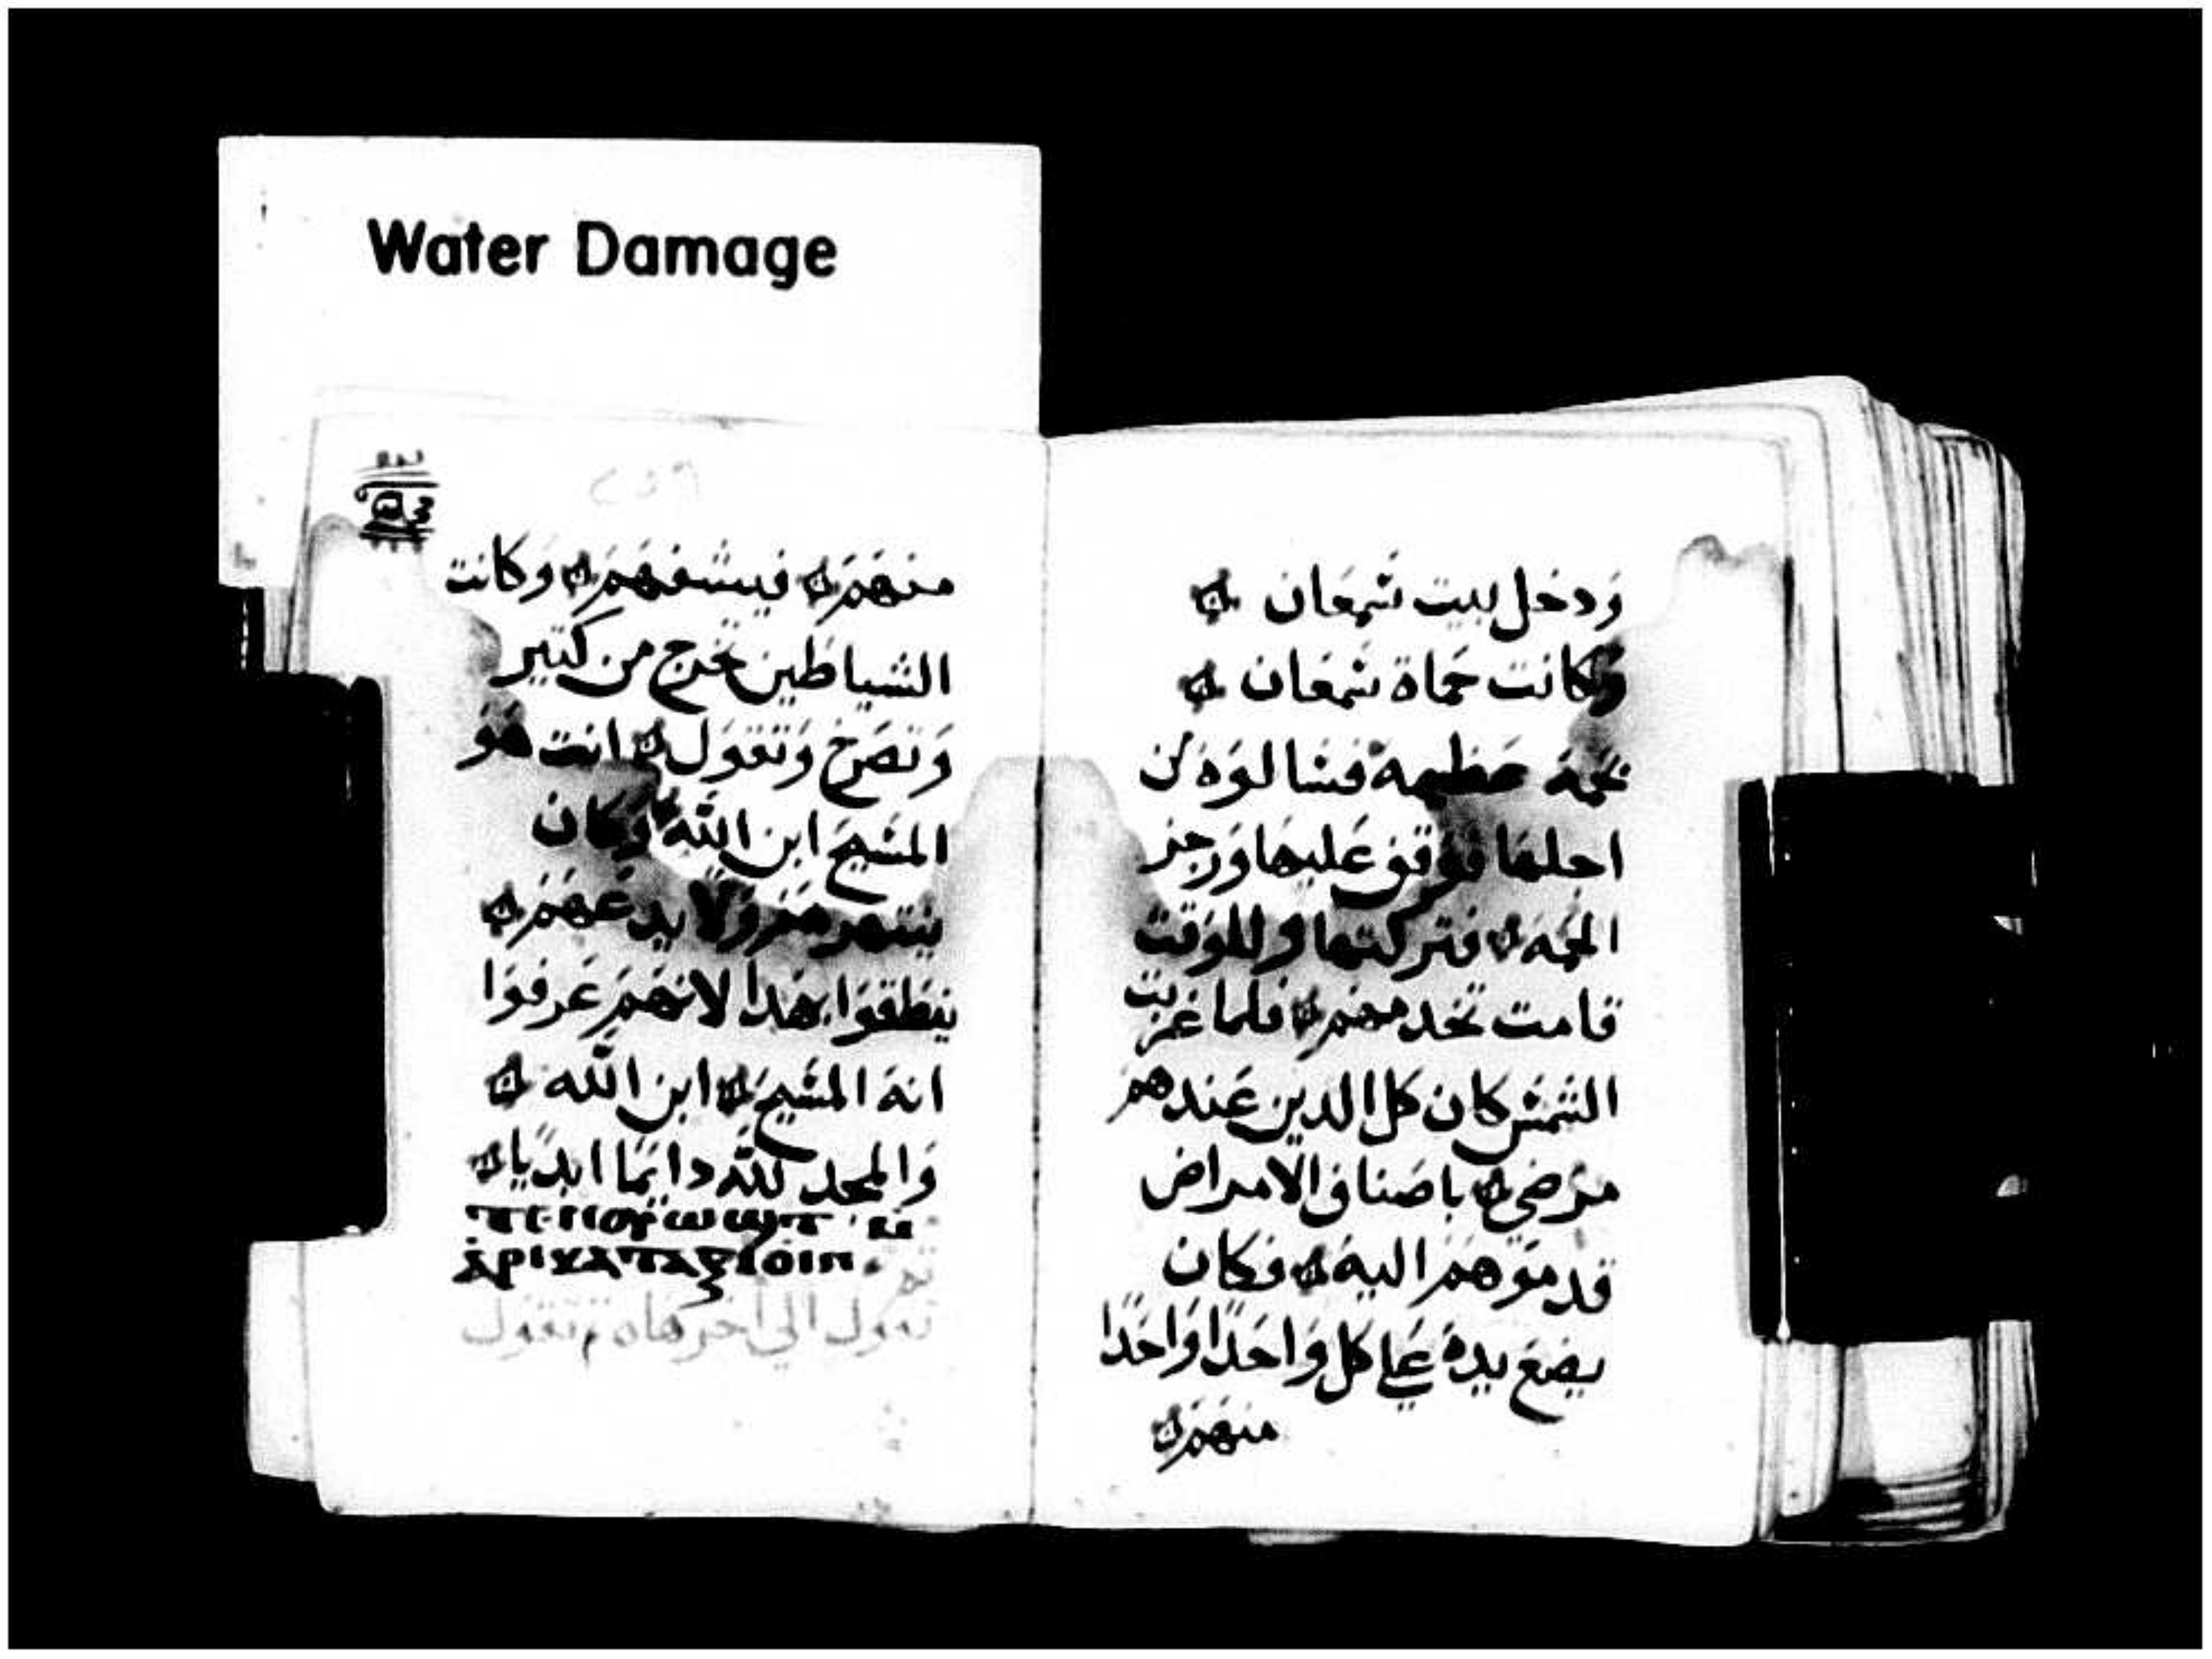 Water Damage
ودخل بيت شمعان
وكانت حماة شمعان
بحمه عظيمه فسالوه من
اجلها فوقف عليها وزجر
الحمه فتركتها وللوقت
قامت تخدمهم فلما غربت
الشمس كان كل الدين عندهم
مرضي باصناف الامراض
قدموهم اليه فكان
يضع يده علي كل واحدا واحدا
منهم
منهم فيشفهم وكانت
الشياطين تخرج من كتير
وتصرخ وتقول انت هو
المسيح ابن الله وكان
ينتهرهم ولا يدعهم
ينطقوا بهدا لانهم عرفوا
انه المسيح ابن الله
والمجد لله دايما ابديا
ⲧⲉⲛⲟⲩⲱϣⲧ
ⲁⲣⲓⲕⲁⲧⲁⲝⲓⲟⲓⲛ
تقول الي اخرها تقول